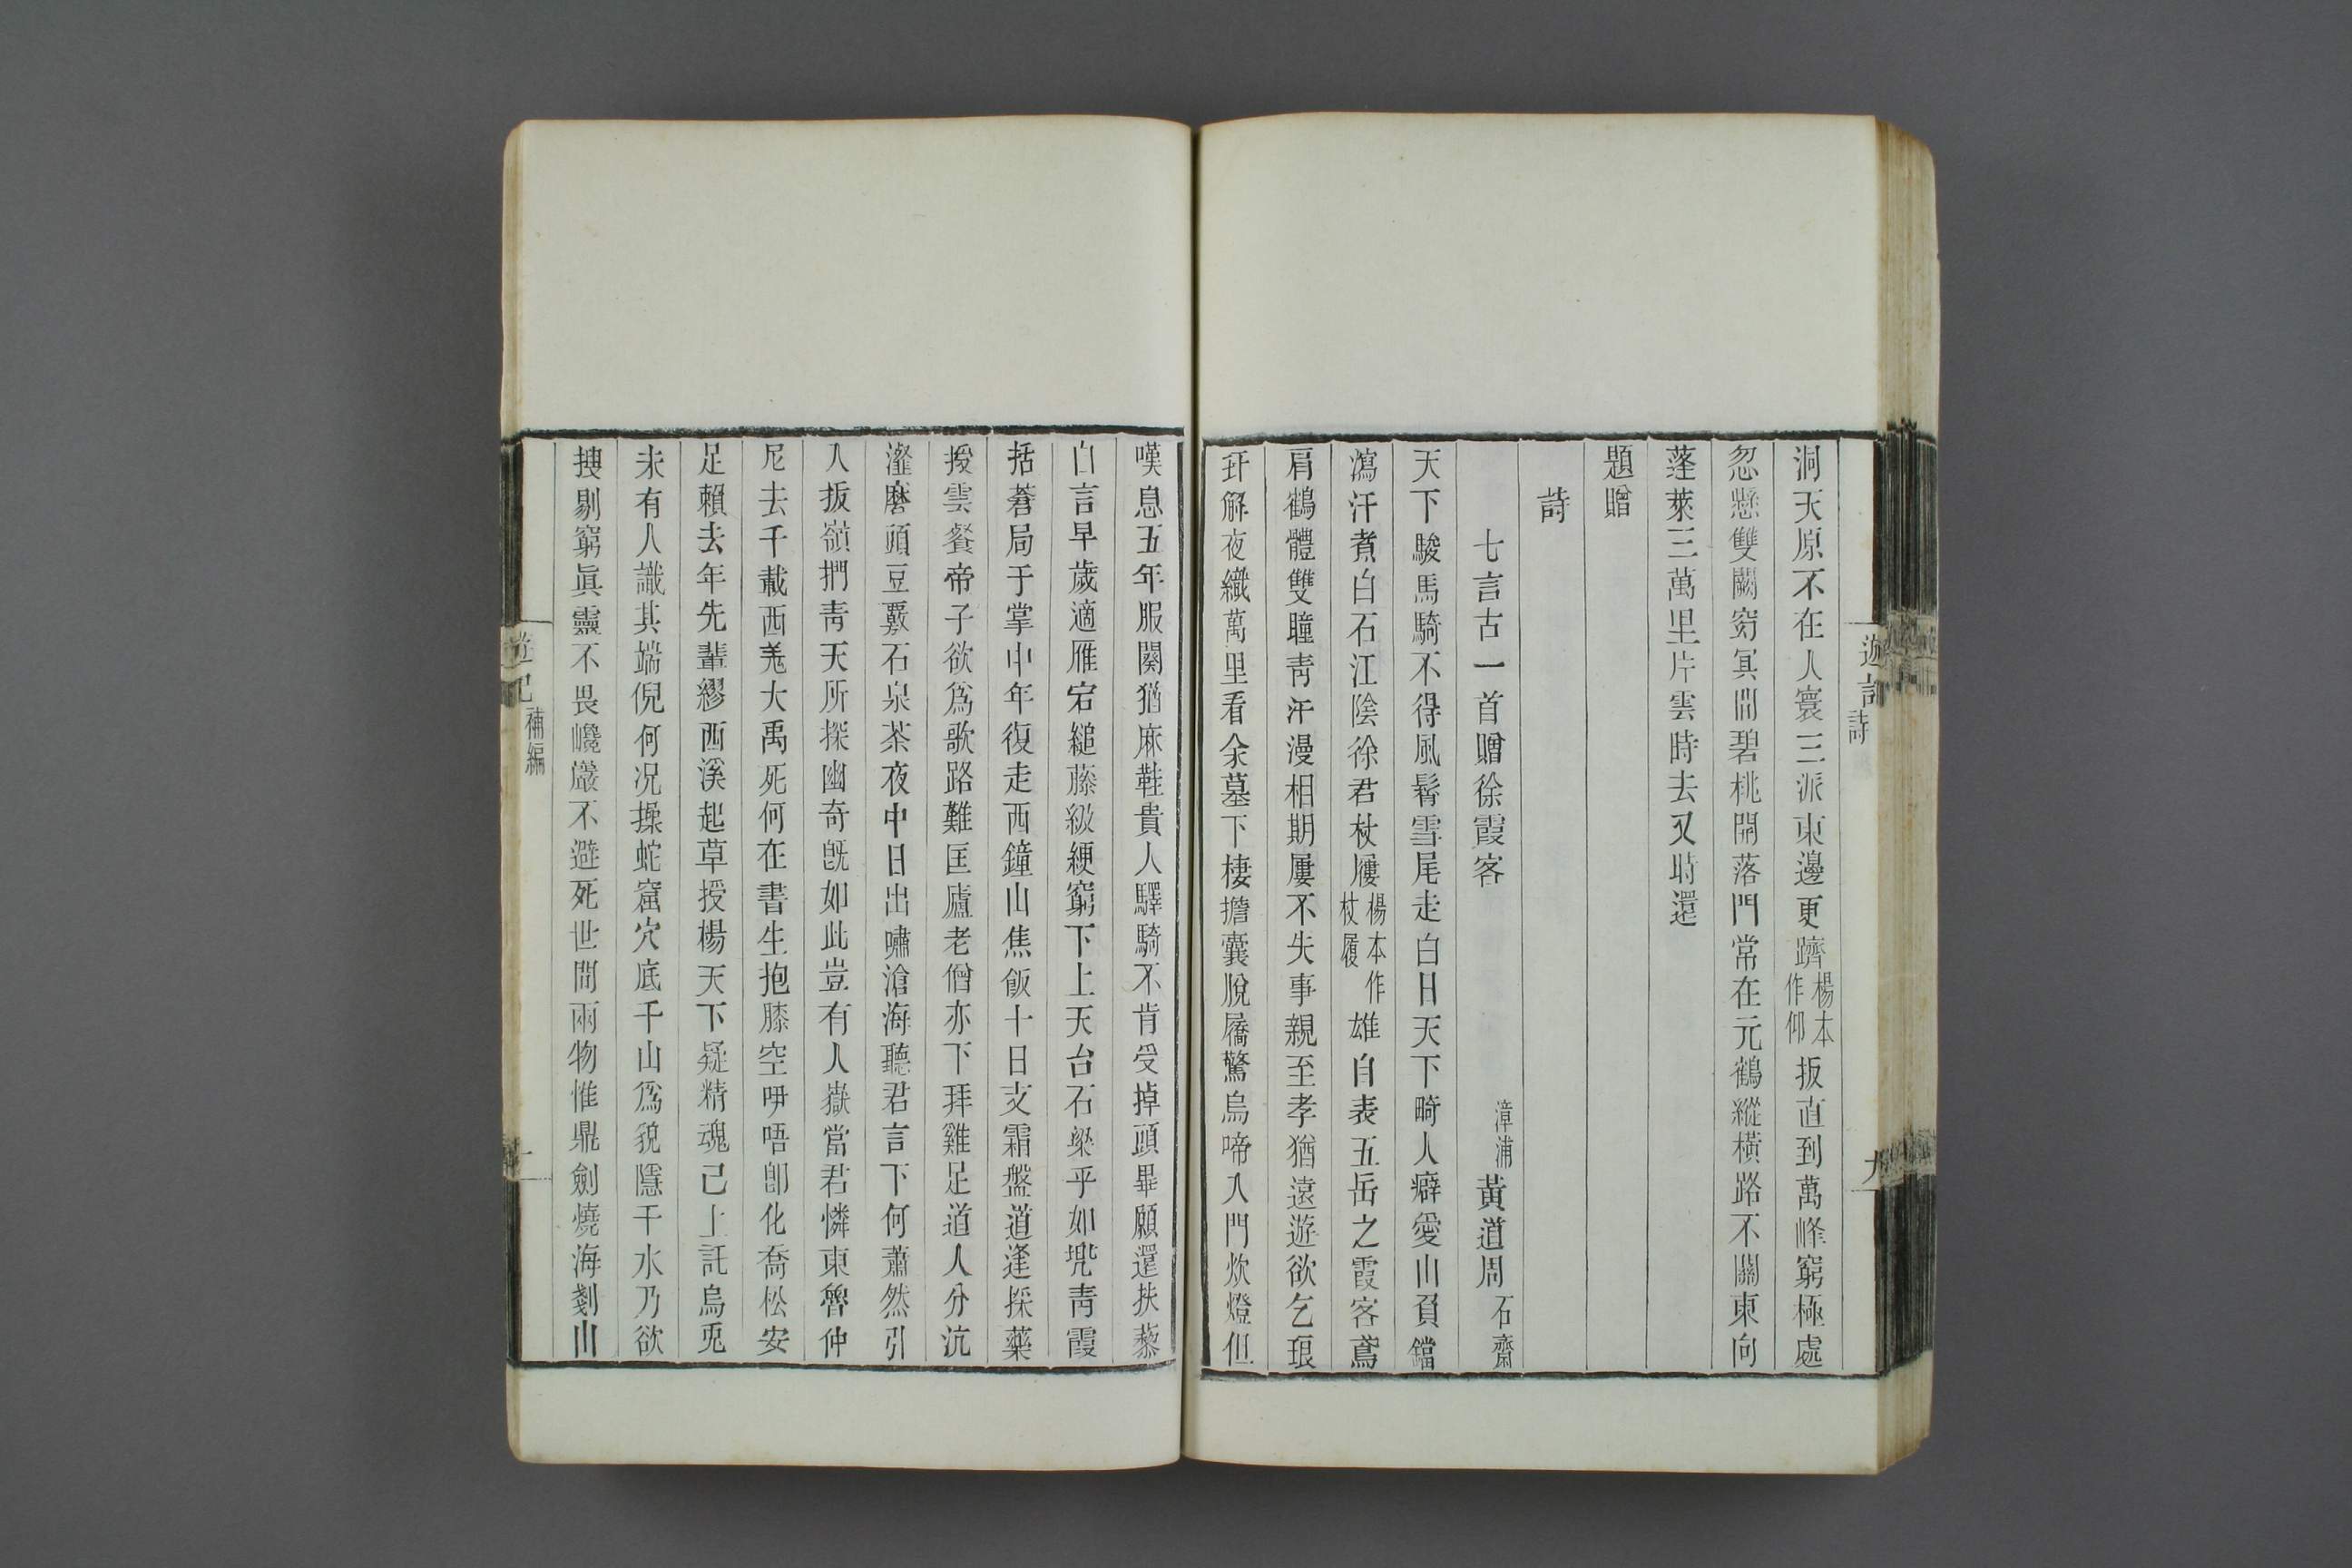 遊記 詩 九
洞天原不在人寰三派東邊更躋楊本作仰扳直到萬峰窮極處
忽懸雙闕窈冥間碧桃開落門常在元鶴縱橫路不關東向
蓬萊三萬里片雲時去又時還
題贈
詩
七言古一首贈徐霞客 漳浦黃道周石齋
天下駿馬騎不得風鬐雪尾走白日天下畸人癖愛山負鐺
瀉汗煮白石江陰徐君杖屨楊本作杖履雄自表五岳之霞客鳶
肩鶴體雙瞳靑汗漫相期屢不失事親至孝猶遠遊欲乞琅
玕解夜織萬里看余墓下棲擔囊脫屩驚烏啼入門炊燈但
嘆息五年服闋猶麻鞋貴人驛騎不肯受掉頭畢願還扶藜
白言早歲適雁宕縋藤級綆窮下上天台石梁乎如兠靑霞
括蒼局于掌中年復走西鐘山焦飯十日支霜盤道逢採藥
授雲餐帝子欲爲歌路難匡廬老僧亦下拜雞足道人分沆
瀣磨頭豆覈石泉茶夜中日出嘯滄海聽君言下何蕭然引
人扳嶺捫靑天所探幽奇旣如此豈有人嶽當君憐東魯仲
尼去千載西羌大禹死何在書生抱膝空吚唔卽化喬松安
足賴去年先輩繆西溪起草授楊天下疑精魂已上託烏兎
未有人識其端倪何况操蛇窟穴底千山爲貌隱千水乃欲
搜剔窮眞靈不畏巉巖不避死世間兩物惟鼎劍燒海剗山
遊記 補編